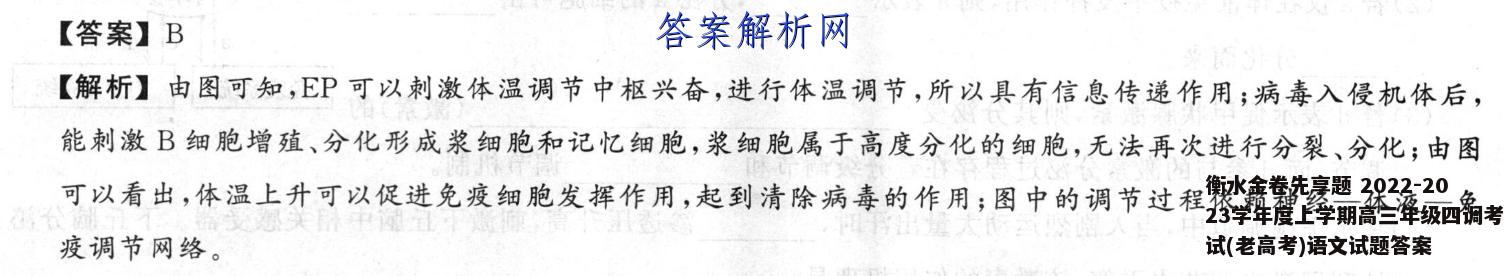 【答案】B
答案解析网
【解析】由图可知,EP可以刺激体温调节中枢兴奋,进行体温调节,所以具有信息传递作用;病毒入侵机体后,
能刺激B细胞增殖、分化形成浆细胞和记忆细胞,浆细胞属于高度分化的细胞,无法再次进行分裂、分化;由图
可以看出,体温上升可以促进免疫细胞发挥作用,起到清除病毒的作用;图中的调节过程依赖神经—体液—免
疫调节网络。
衡水金卷先享题 2022-20
23学年度上学期高三年级四调考
试(老高考)语文试题答案